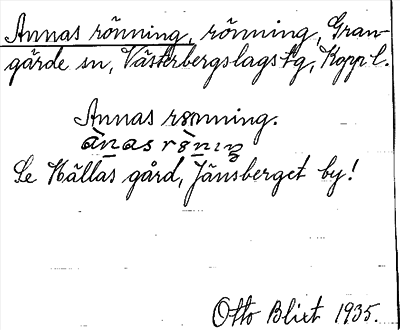 Annas rönning, rönning, Gran-
gärde sn, Västerbergslags tg, Kopp l.
Annas rönning.
ànas rö̀niŋ
Se Källas gård, Jänsberget by!
Otto Blixt 1935.